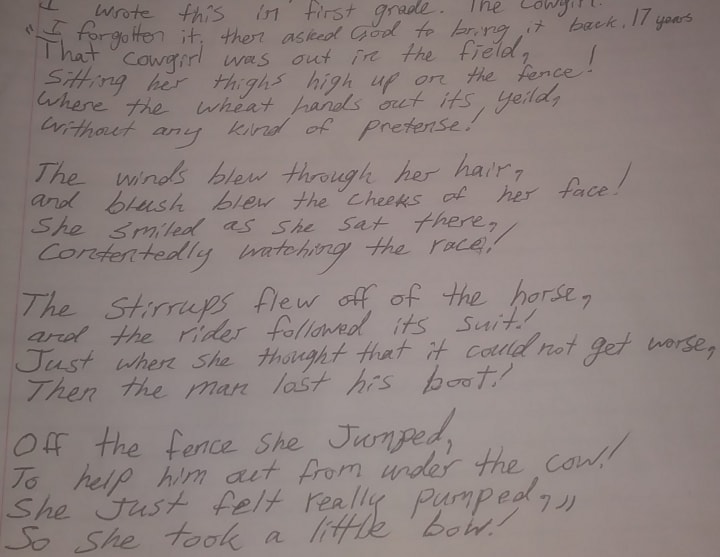 I wrote this in first grade. The Cowgirl.
"I forgotten it, then asked God to bring it back. 17 years
That cowgirl was out in the field,
Sitting her thighs high up on the fence!
Where the wheat hands out its yeild,
Without any kind of pretense!
The winds blew through her hair,
and blush blew the cheeks of her face!
She smiled as she sat there,
Contentedly watching the race!
The stirrups flew off of the horse,
and the rider followed its suit!
Just when she thought that it could not get worse,
Then the man lost his boot!
Off the fence she Jumped,
To help him out from under the cow!
She Just felt really pumped,"
So she took a little bow!